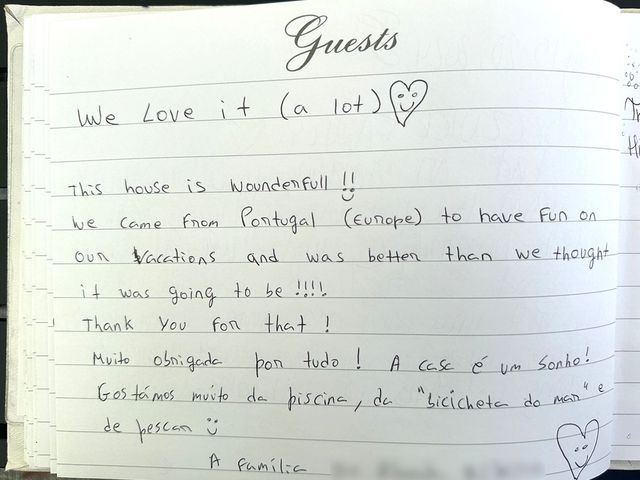 Guests
We Love it (a lot)
This house is wounderfull !!
we came from Portugal (Europe) to have fun on
our vacations and was better than we thought
it was going to be !!!!
Thank you for that !
Muito obrigada por tudo ! A casa é um sonho!
Gostámos muito da piscina, da "bicicheta do mar" e
de pescar
A família